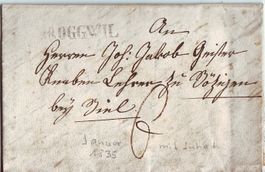 ROGGWIL
An
Herren Joh: Jakob Geister
Knaben Lehrer zu Bözigen
bey Biel
6
Januar
1835
mit Inhalt